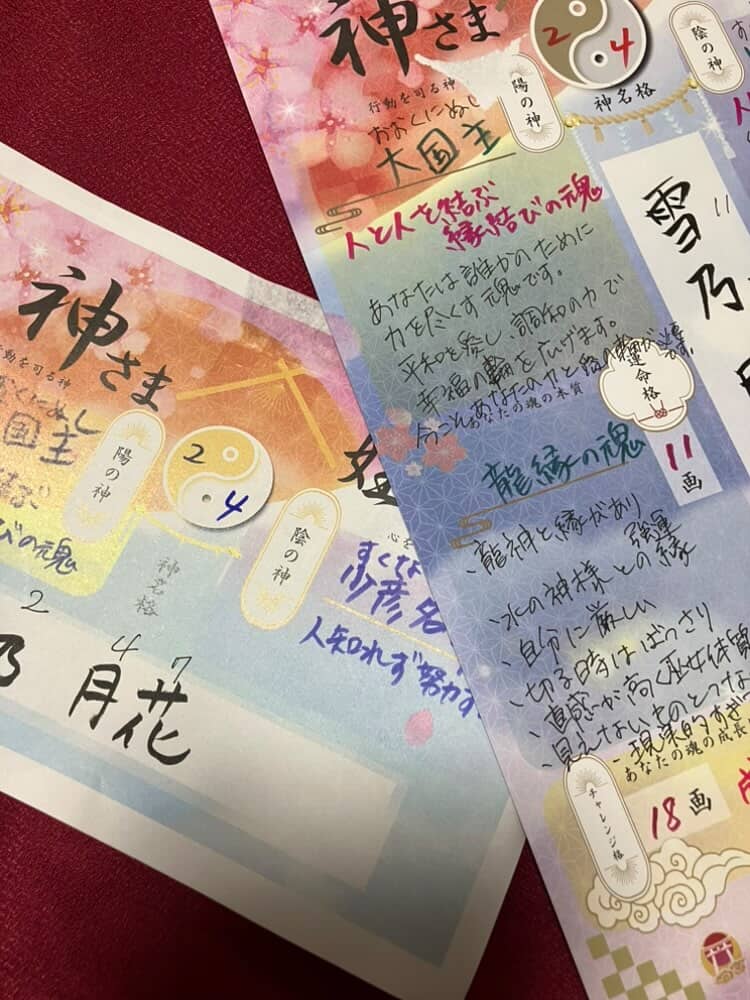 神さま
行動を司る神
おおくにぬし
大国主
陽の神
2
4
神名格
陰の神
人と人を結ぶ
縁結びの魂
あなたは誰かのために
力を尽くす魂です。
平和を愛し、調和の力で
幸福の輪を広げます。
今こそあなたの力と愛の輪が必要です。
あなたの魂の本質
雪乃
11
運命格
11画
龍縁の魂
、龍神と縁があり
強運
、水の神様との縁
、自分に厳しい
、切る時はばっさり
、直感が高く巫女体質
、見えないものとつな
、現実的すぎ
あなたの魂の成長
チャレンジ格
18画
神さま
行動を司る神
おおくにぬし
国主
結ぶ
びの魂
陽の神
2
4
神名格
陰の神
すくな
少彦名
人知れず努力す
2
4
7
乃
月花